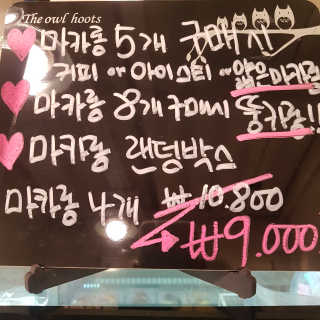 The owl hoots
마카롱 5개 구매시
커피 or 아이스티 or 얇은마카롱
마카롱 8개 구매시 뚱카롱!!
마카롱 랜덩박스
마카롱 4개 ₩10.800
₩9.000